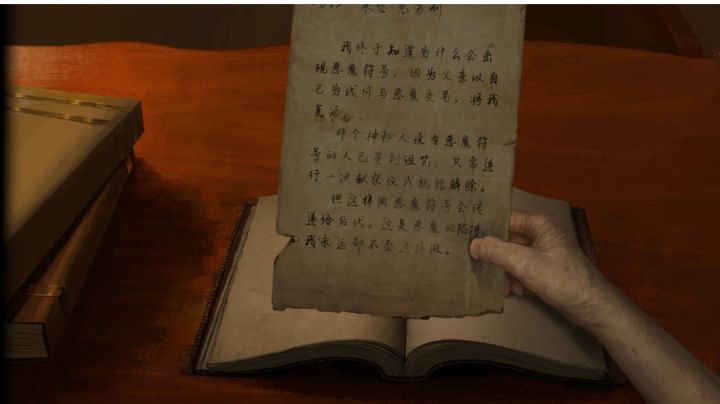 我终于知道为什么会出
现恶魔符号，因为父亲以自
己为代价与恶魔交易，将我
那个神秘人说有恶魔符
号的人已受到诅咒，只需进
行一次献祭仪式就能解除。
但这样做恶魔符号会传
递给后代。这是恶魔的陷阱，
我永远都不会这样做。